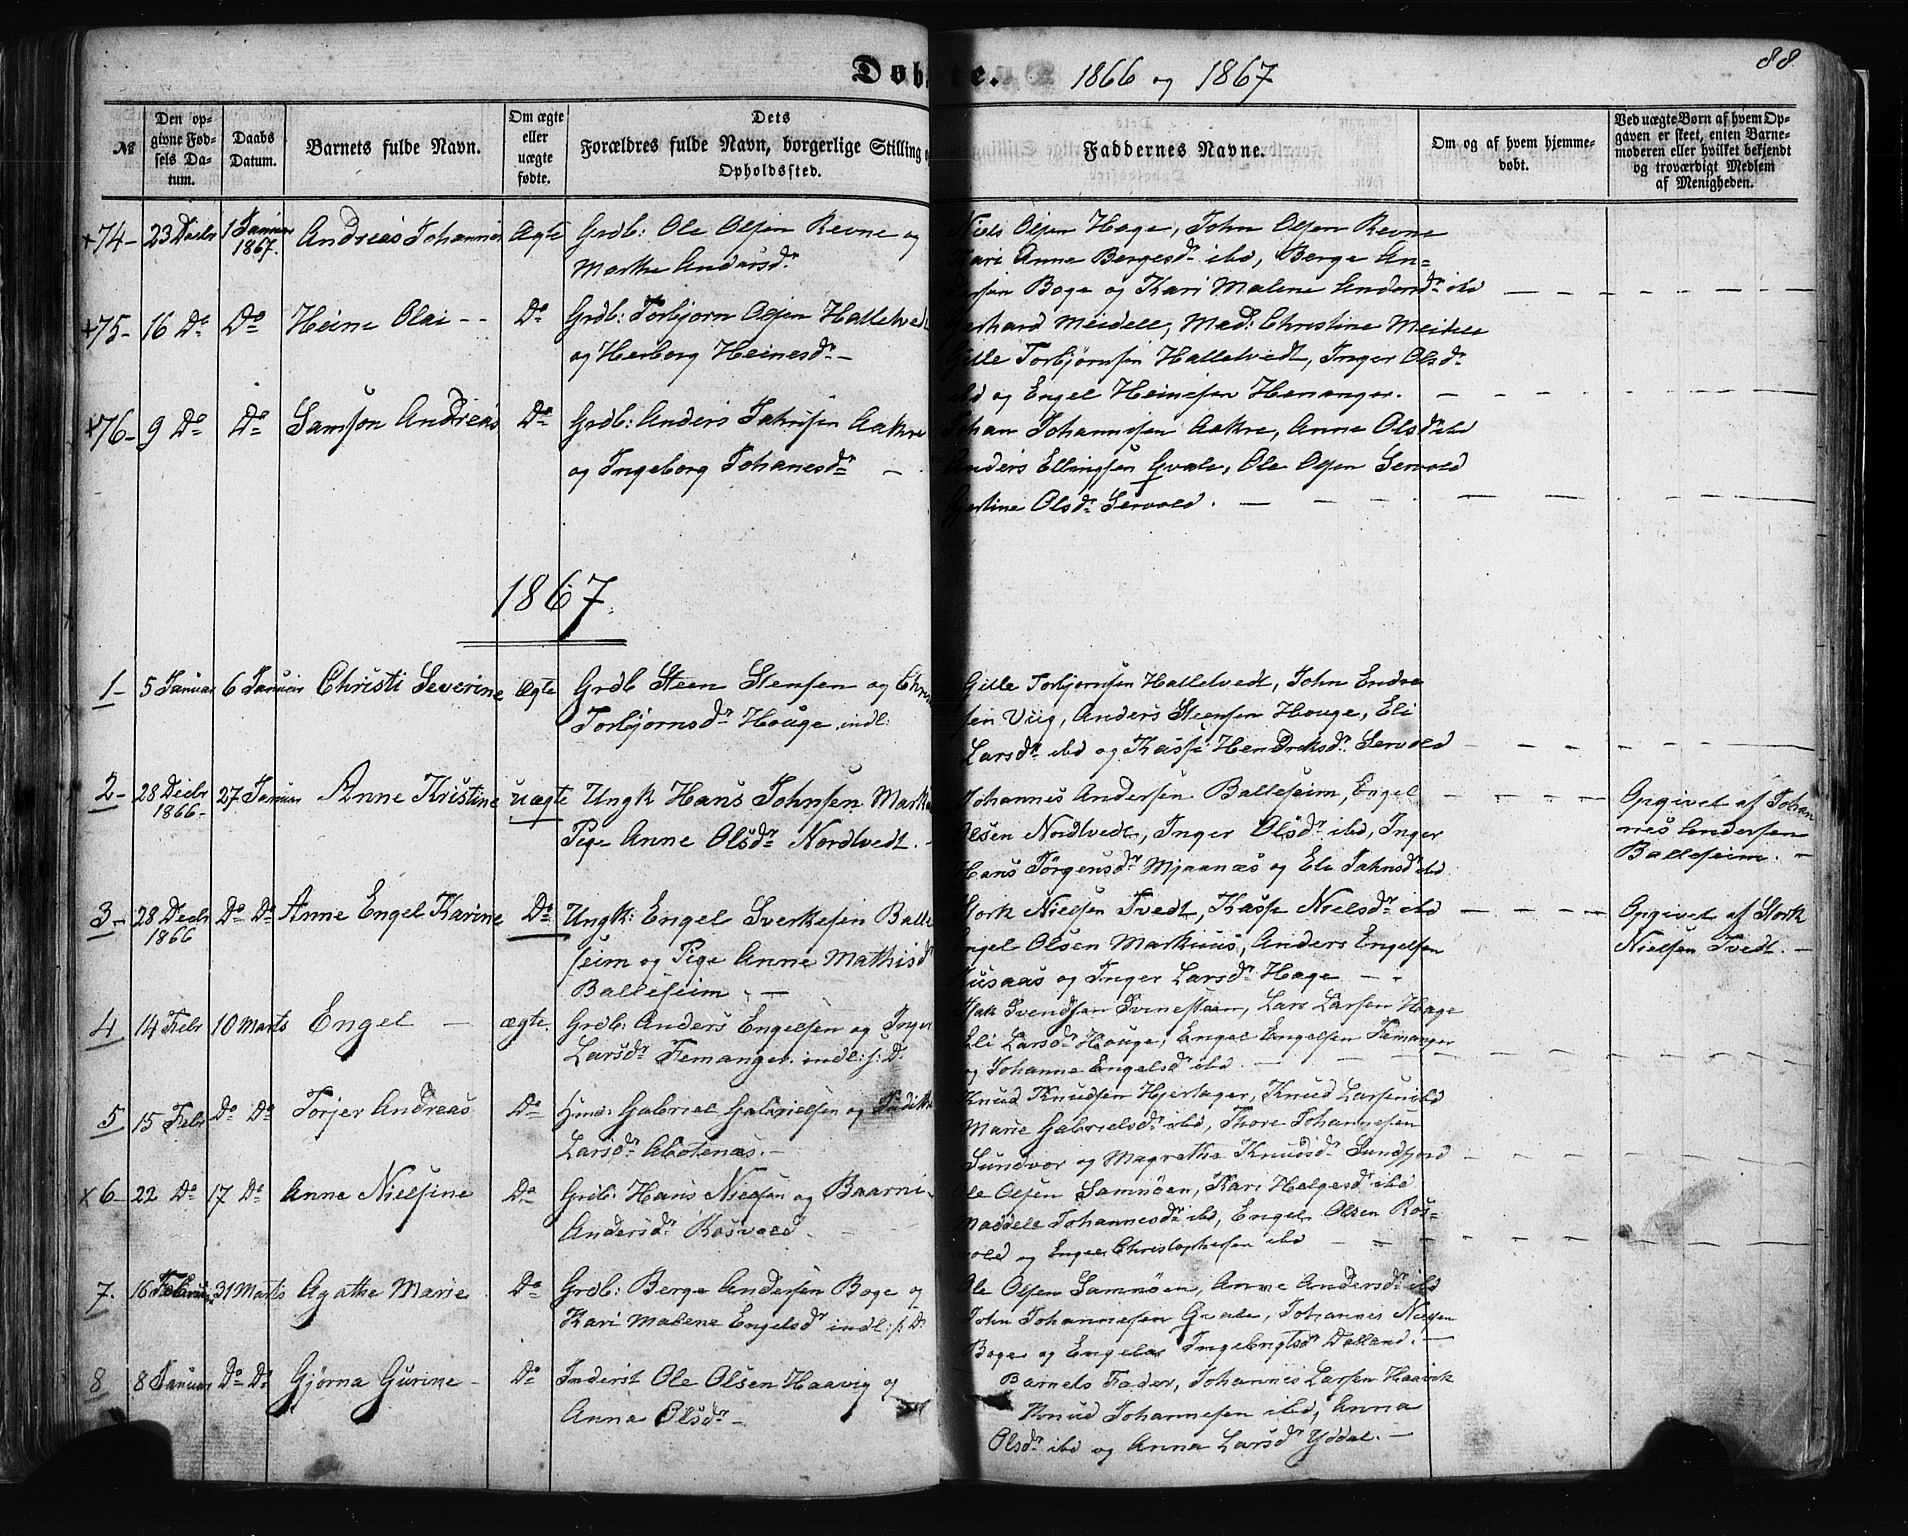 88
Døbte. 1866 og 1867
№
Den op-
givne Fød-
sels Da-
tum.
Daabs
Datum.
Barnets fulde Navn.
Om ægte
eller
uægte
fødte.
Dets
Forældres fulde Navn, borgerlige Stilling o
Opholdssted.
Faddernes Navne.
Om og af hvem hjemme-
døbt.
Ved uægte Børn af hvem Op-
gaven er skeet, enten Barne-
moderen eller hvilket bekjendt
og troværdigt Medlem
af Menigheden.
+74- 23 Decbr 1 Januar 1867. Andreas Johannes Ægte Grdb: Ole Olsen Revne og
Marthe Andersdr
Niels Olsen Hage, John Olsen Revne
Kari Anne Bergesdr ibd, Berge An=
dersen Boge og Kari Malene Andersdr ibd
+75- 16 Do Do Heine Olai -- Do Grdb: Torbjørn Olsen Halletvedt
og Herborg Heinesdr -
Gerhard Meidell, Mad: Christine Meidell
Gille Torbjørnsen Halletvedt, Inger Olsdr
ibd og Engel Heinesen Henanger.
+76- 9 Do Do Samson Andreas Do Grdb: Anders Johnsen Aakre
og Ingeborg Johanesdr -
Johan Johannesen Aakre, Anne Olsdr ibd
Anders Ellingsen Gvale, Ole Olsen Servold
Olsdr Servold.
1867.
1- 5 Januar 6 Januar Christi Severine Ægte Grdb Steen Stensen og Chri
Torbjørnsdr Houge indl:
Gille Torbjørnsen Halletvedt, John Endre
sen Viig, Anders Steensen Houge, Eli
Larsdr ibd og Kasse Hendriksdr Servold
2- 28 Decbr 1866- 27 Januar Anne Kristine uægte Ungk Hans Johnsen Mark
Pige Anne Olsdr Nordtvedt. -
Johannes Andersen Balleseim, Engel
Olsen Nordtvedt, Inger Olsdr ibd, Inger
Hans Jørgensdr Mjaanæs og Eli Jahnsdr ibd
Opgivet af Johan
nes Andersen
Balleseim. -
3- 28 Decbr 1866 Do Do Anne Engel Karine Do Ungk: Engel Sverkesen Balle
seim og Pige Anne Mathisdr
Balleseim. -
Stork Nielsen Tvedt, Kasse Nielsdr ibd
Engel Olsen Markhuus, Anders Engelsen
Husaas og Inger Larsdr Hage - -
Opgivet af Stork
Nielsen Tvedt. -
4 14 Febr 10 Marts Engel - ægte. Grdb: Anders Engelsen og Inger
Larsdr Femanger. indl: s: D.
Isak Svendsen, Lars Larsen Hage
Eli Larsdr Houge, Engel Engelsen Femanger
og Johanne Engelsdr ibd.
5 15 Febr Do Do Torjer Andreas Do Hmd: Gabriel Gabrielsen og
Larsdr Abotenæs. -
Knud Knudsen Hjertager, Knud Larsen ibd
Marie Gabrielsdr ibd, Thore Johannesen
Sundvor og Magrethe Knudsdr Sundfjord
x6- 22 Do 17 Do Anne Nielsine Do Grdb: Hans Nielsen og Baarni
Andersdr Rosvold.
Ole Olsen Samnøen, Kari Helgesdr ibd
Maddele Johannesdr ibd, Engel Olsen Ros-
vold og Engel Christophersen ibd
7. 16 Februar 31 Marts Agathe Marie Do Grdb: Berge Andersen Boge og
Kari Malene Engelsdr indl: s: D.
Ole Olsen Samnøen, Anne Andersdr ibd
John Johannesen Gvale, Johannes Nielsen
Boge og Engelas Ingebrigtsdr Dalland. -
8 8 Januar Do Do Gjørna Gurine - Do Inderst Ole Olsen Haavig og
Anna Olsdr -
Barnets Fader, Johannes Larsen Haavik
Knud Johannesen ibd, Anna
Olsdr ibd og Anna Larsdr Yddal. -